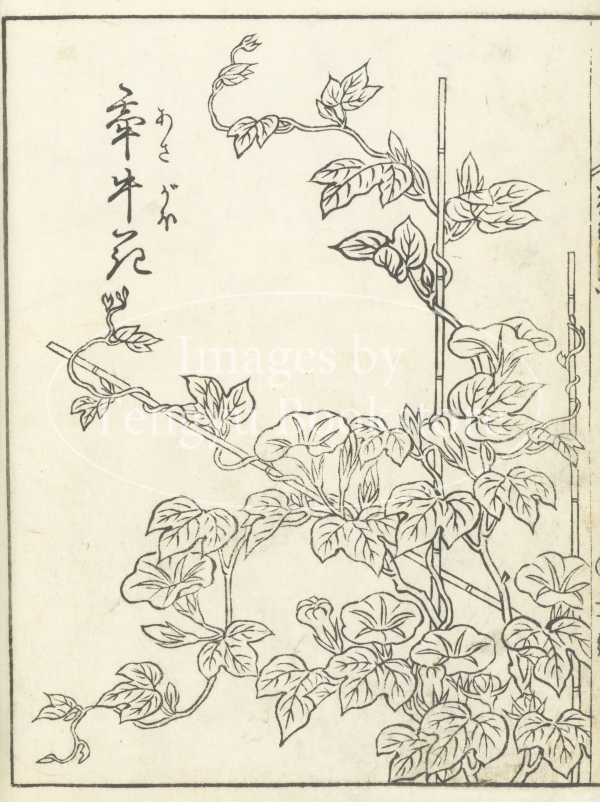 牽牛花
あさがほ
Images by
Tengyu Bookstore